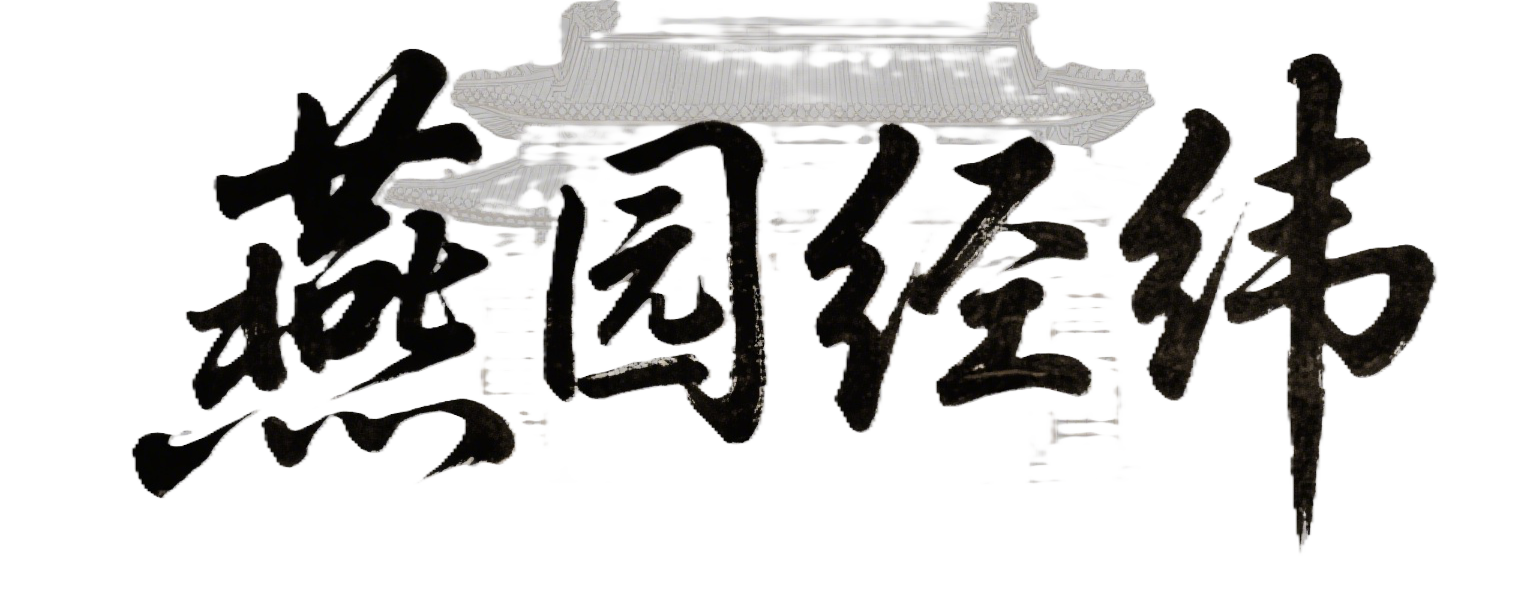 燕园经纬